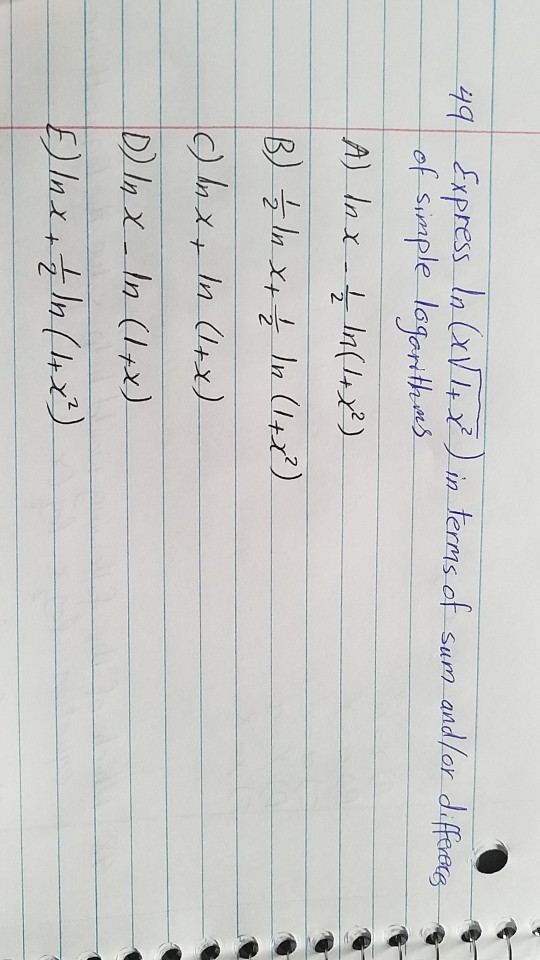 49 Express ln(x√1+x²) in terms of sum and/or differences
of simple logarithms
A) ln x - 1/2 ln(1+x²)
B) 1/2 ln x + 1/2 ln (1+x²)
C) ln x + ln (1+x)
D) ln x - ln (1+x)
E) ln x + 1/2 ln (1+x²)